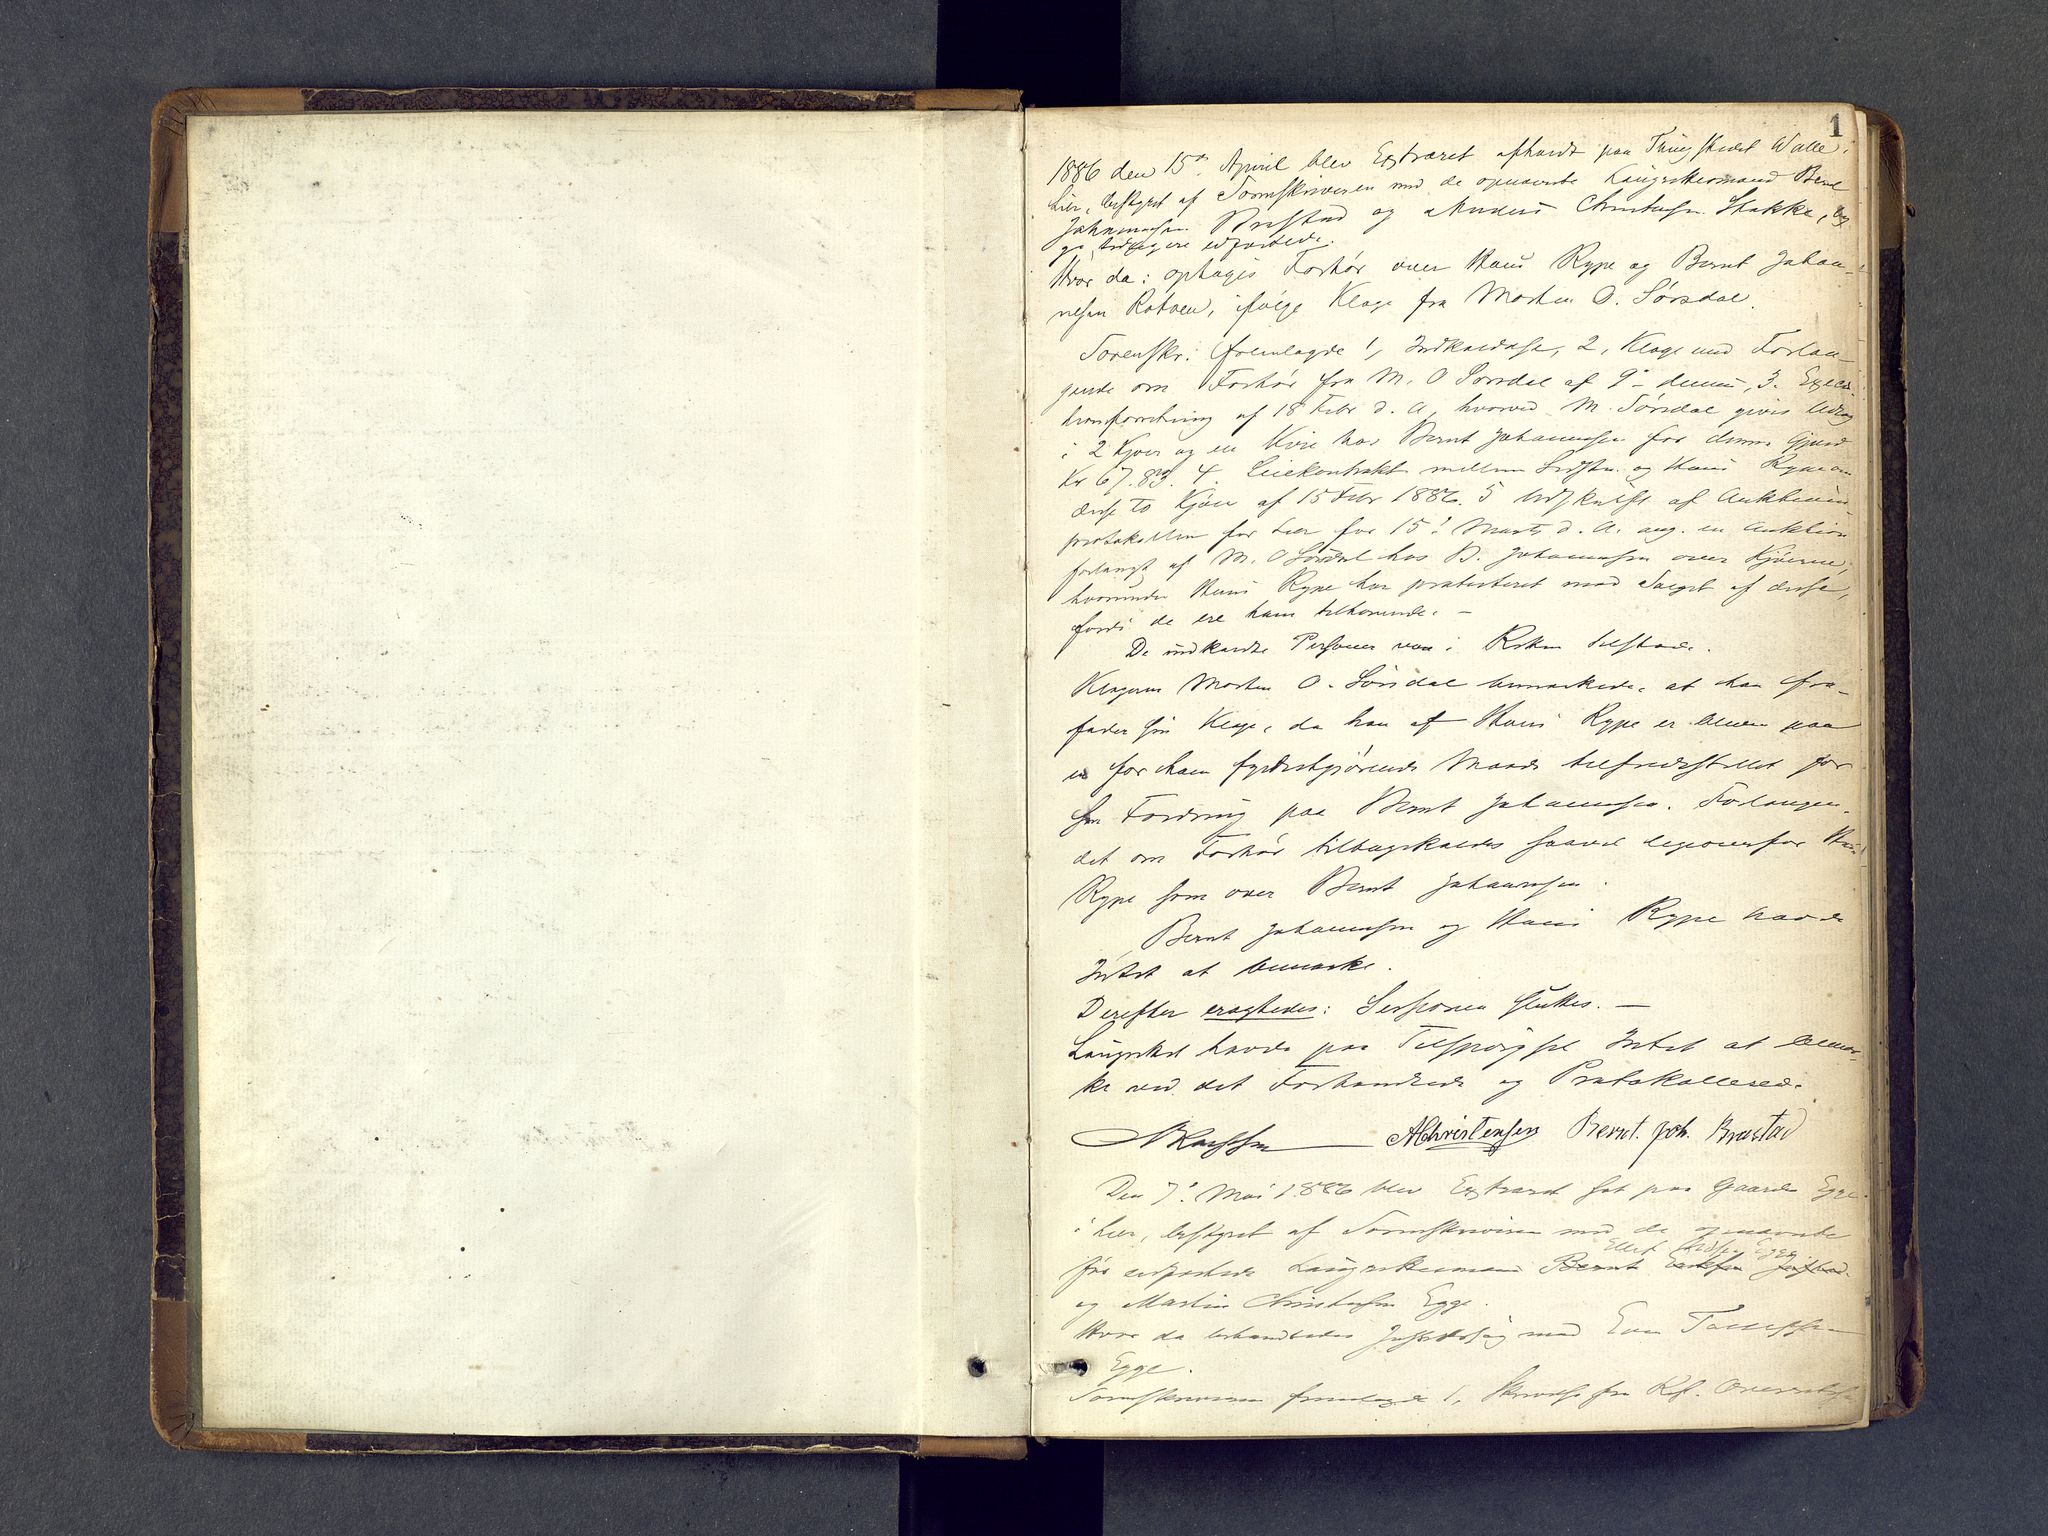 1
1886 den 15de April blev Extraret afholdt paa Thingstedet Walle i
Lier, bestyret af Sorenskriveren med de opnævnte Laugrettesmænd Bernt
Johannesen Brastad og Anders Christensen Stakke, beg-
ge tidligere edfæstede.
Hvor da: optages Forhør over Hans Rype og Bernt Johan-
nesen Rotven, ifølge Klage fra Morten O. Sørsdal.
Sorenskr. fremlagde 1, Indkaldelse, 2, Klage med Forlan-
gende om Forhør fra M. O Sørsdal af 9de dennes, 3. Exeku-
tionsforretning af 18 Febr d. A, hvorved M. Sørsdal gives Udlæg
i 2 Kjøer og en Kvie hos Bernt Johannesen for dennes Gjæld
Kr 67.83. 4. Leiekontrakt mellem Sidstn. og Hans Rype om
disse to Kjøer af 15 Febr 1886. 5 Udskrift af Auktions-
protokollen for Lier for 15de Marts d. A. ang. en Auktion
forlangt af M. O Sørsdal hos B. Johannesen over Kjøerne,
hvorunder Hans Rype har protesteret mod Salget af disse,
fordi de ere ham tilhørende. —
De indkaldte Personer var i Retten tilstede.
Klageren Morten O. Sørsdal bemærkede, at han fra-
falder sin Klage, da han af Hans Rype er bleven paa
en for ham fyldestgjørende Maade tilfredsstillet for
sin Fordring paa Bernt Johannesen. Forlangen-
det om Forhør tilbagekaldes saavel ligeoverfor Hans
Rype som over Bernt Johannesen.
Bernt Johannesen og Hans Rype havde
Intet at bemærke.
Derefter eragtedes: Sessionen sluttes. —
Laugrettet havde paa Tilspørgsel Intet at bemær-
ke ved det Forhandlede og Protokollerede.
AChristensen Bernt. Joh. Brastad
Den 7de Mai 1886 blev Extraret sat paa Gaarden Egge
i Lier, bestyret af Sorenskriveren med de opnævnte
Ellef Egge
før edfæstede Laugrettesmænd Bernt
og Martin Christensen Egge.
Hvor da behandledes Justitssag mod Even
Egge.
Sorenskriveren fremlagde 1, Skrivelse fra Kst.